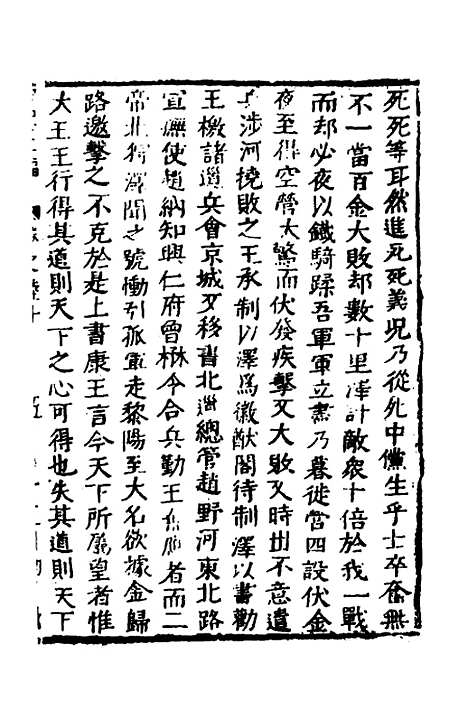 死死等耳然進死死義况乃從死中儻生乎士卒奮無
不一當百金大敗却數十里澤計敵衆十倍於我一戰
而却必夜以鐵騎蹂吾軍軍立盡乃暮徙營四設伏金
夜至得空營大驚而伏發疾擊又大敗又時出不意遣
兵涉河撓敗之王承制以澤爲徽猷閣待制澤以書勸
王檄諸道兵會京城又移書北道總管趙野河東北路
宣撫使范納知興仁府曾楙令合兵勤王無應者而二
帝北狩澤聞之號慟引孤軍走黎陽至大名欲據金歸
路邀擊之不克於是上書康王言今天下所屬望者惟
大王王行得其道則天下之心可得也失其道則天下